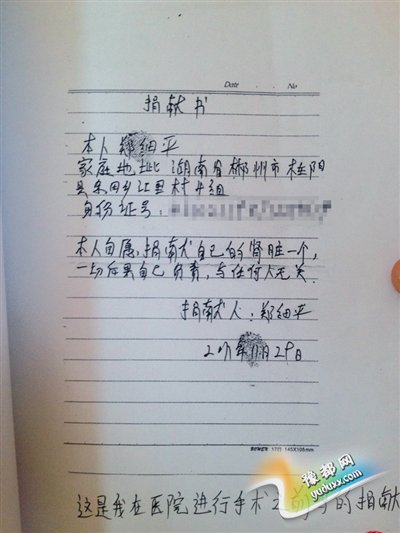 Date No
捐献书
本人郑细平
家庭地址 湖南省郴州市桂阳
县东回乡江里村4组
身份证号:
本人自愿,捐献自己的肾脏一个,
一切后果自己负责,与任何人无关.
捐献人:郑细平
年11月29日
17行 145X106mm
这是我在医院进行手术之前写的捐献
豫都网
yuduxx.com